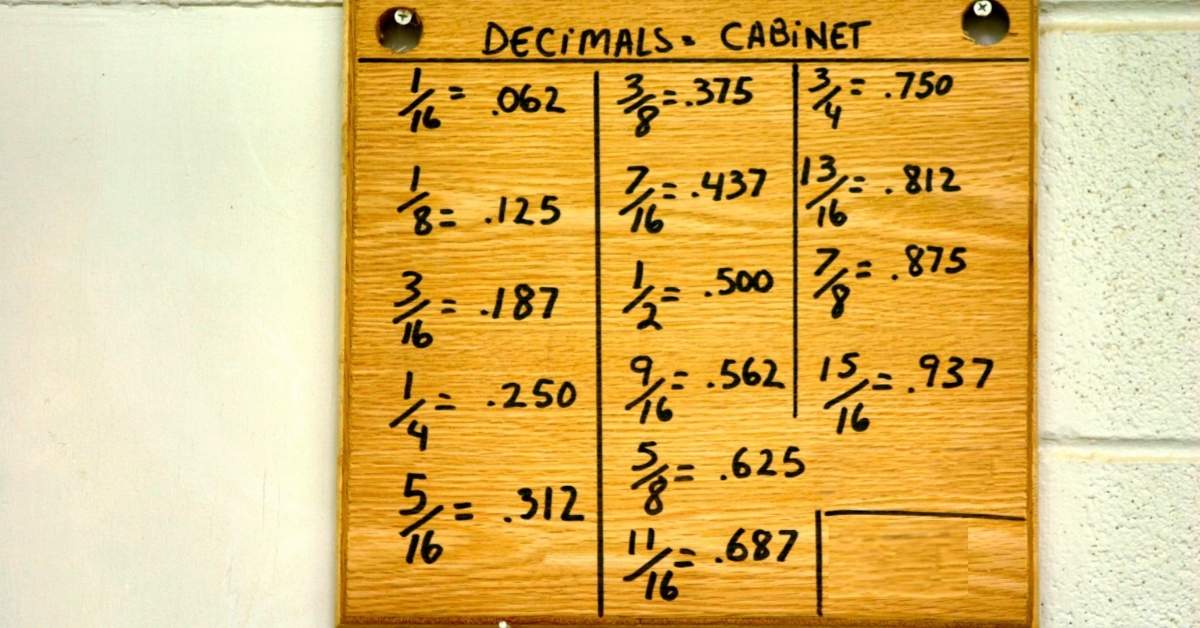 DECiMALS. CABiNET
1/16 = .062
1/8 = .125
3/16 = .187
1/4 = .250
5/16 = .312
3/8 = .375
7/16 = .437
1/2 = .500
9/16 = .562
5/8 = .625
11/16 = .687
3/4 = .750
13/16 = .812
7/8 = .875
15/16 = .937